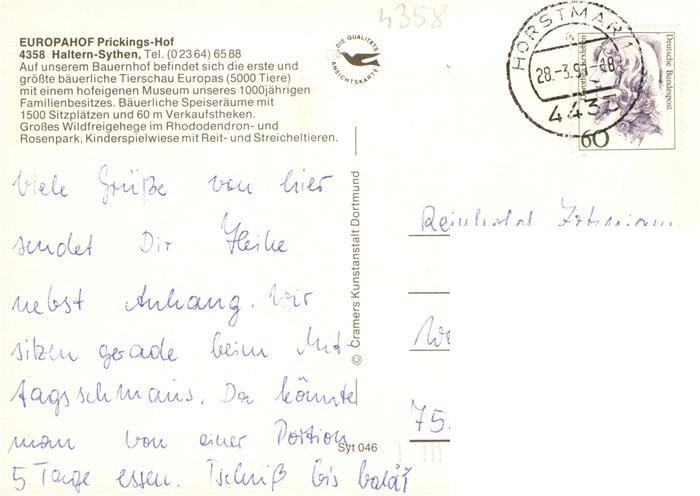 4358
EUROPAHOF Prickings-Hof
4358 Haltern-Sythen, Tel. (02364) 6588
Auf unserem Bauernhof befindet sich die erste und
größte bäuerliche Tierschau Europas (5000 Tiere)
mit einem hofeigenen Museum unseres 1000jährigen
Familienbesitzes. Bäuerliche Speiseräume mit
1500 Sitzplätzen und 60 m Verkaufstheken.
Großes Wildfreigehege im Rhododendron- und
Rosenpark, Kinderspielwiese mit Reit- und Streicheltieren.
DIE QUALITÄTS
ANSICHTSKARTE
HORSTMAR 1
28.-3.91-18
4435
Deutsche Bundespost
60
Viele Grüße von hier
sendet Dir Heike
nebst Anhang. Wir
sitzen gerade beim Mit-
tagsschmaus. Da könnte
man von einer Portion
5 Tage essen. Tschüß bis
© Cramers Kunstanstalt Dortmund
Syt 046
Reinhold
75.